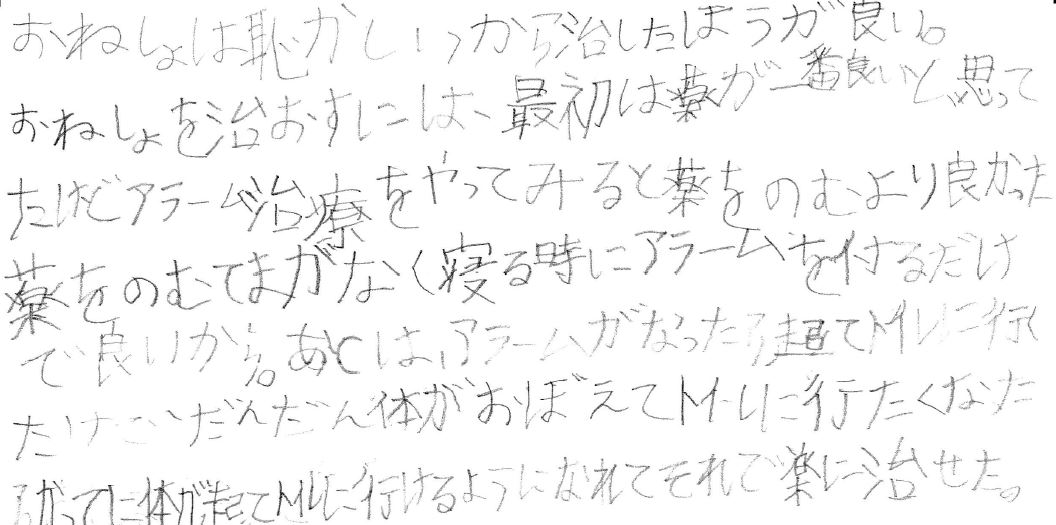 おねしょは恥かしいっから治したほうが良い。
おねしょを治おすには、最初は薬が一番良いと思って
たけどアラーム治療をやってみると薬をのむより良かった
薬をのむてまがなく寝る時にアラームを付るだけ
で良いから。あとは、アラームがなったら起てトイレに行く
たけどだんだん体がおぼえてトイレに行たくなた
らかってに体が起てトイレに行けるようになれてそれで楽に治せた。